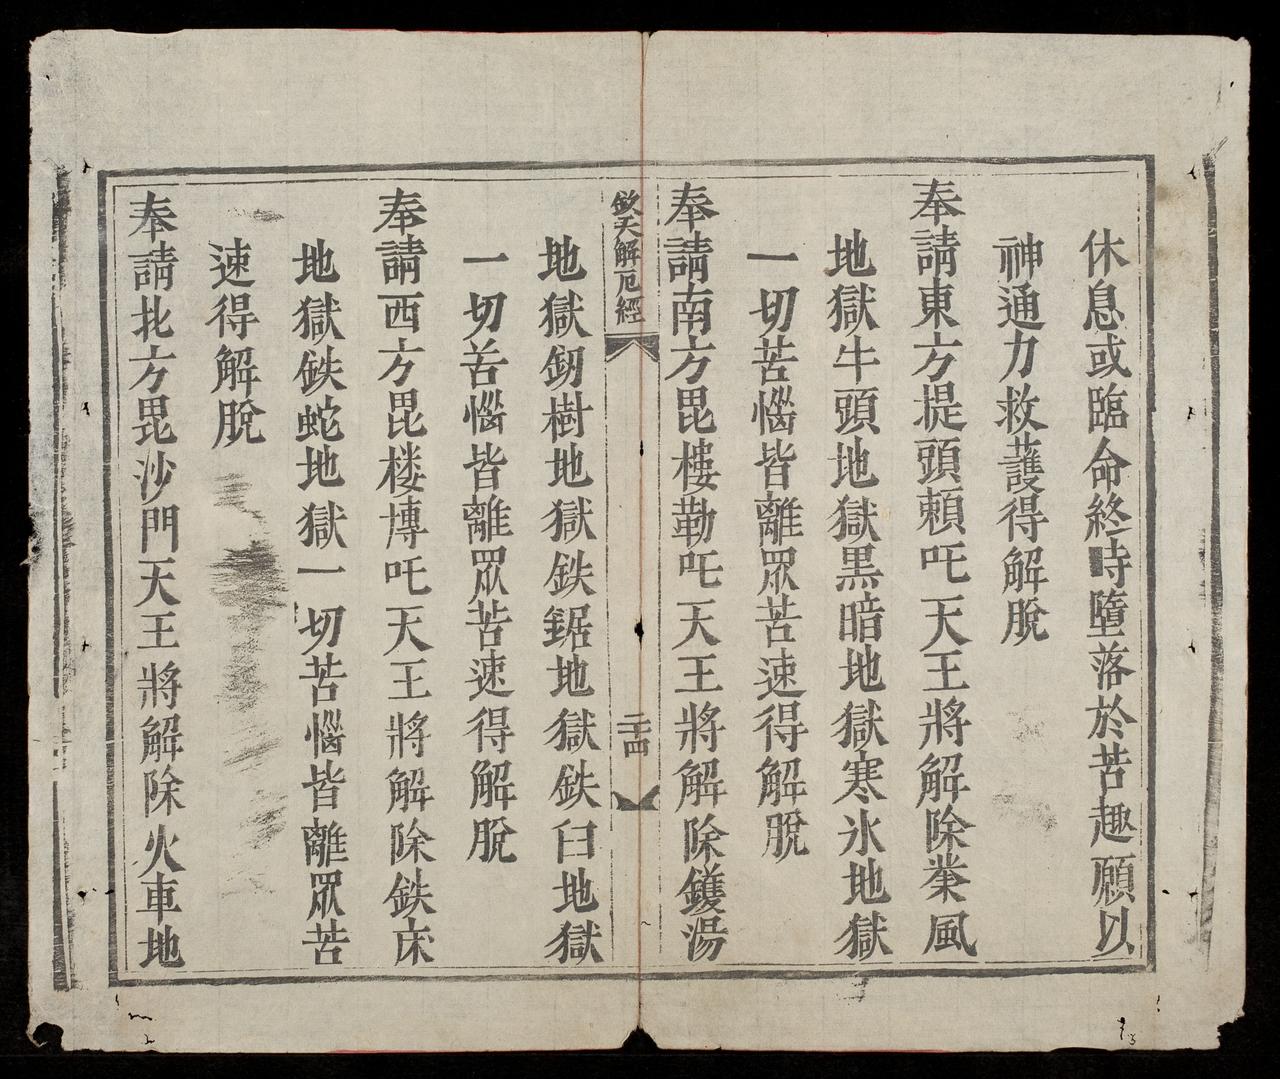 休息或臨命終時墮落於苦趣願以
神通力救護得解脫
奉請東方提頭賴吒天王將解除業風
地獄牛頭地獄黑暗地獄寒氷地獄
一切苦惱皆離眾苦速得解脫
奉請南方毘樓勒吒天王將解除鑊湯
欽天解厄經
二十四
地獄釰樹地獄鉄鋸地獄鉄臼地獄
一切苦惱皆離眾苦速得解脫
奉請西方毘楼博吒天王將解除鉄床
地獄鉄蛇地獄一切苦惱皆離眾苦
速得解脫
奉請北方毘沙門天王將解除火車地